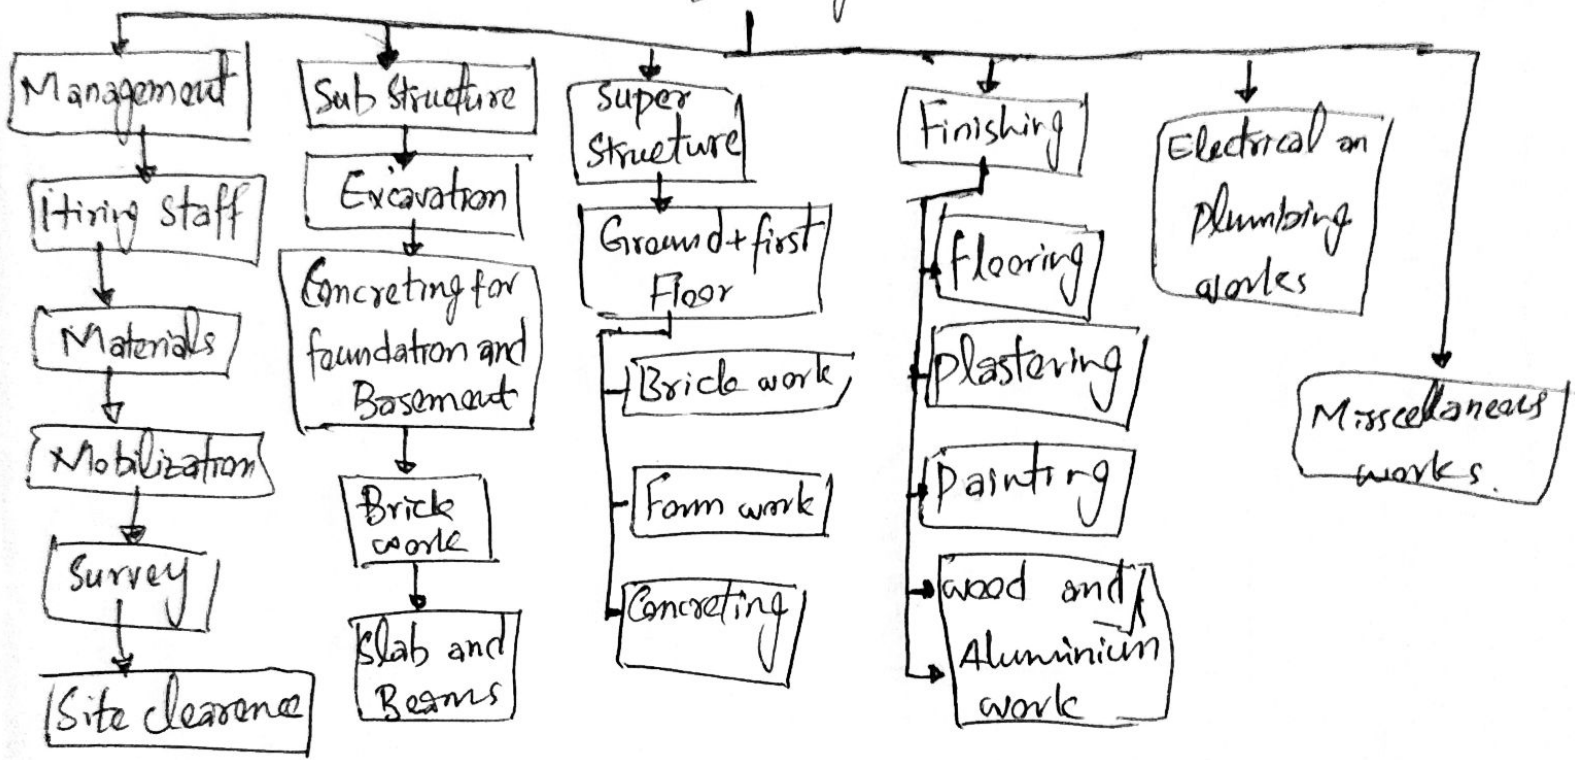 Management
Hiring staff
Materials
Mobilization
Survey
Site clearence
Sub structure
Excavation
Concreting for
foundation and
Basement
Brick
work
Slab and
Beams
Super
structure
Ground + first
Floor
Brick work
Form work
Concreting
Finishing
flooring
Plastering
Painting
wood and
Aluminium
work
Electrical an
plumbing
works
Misscellaneous
works.